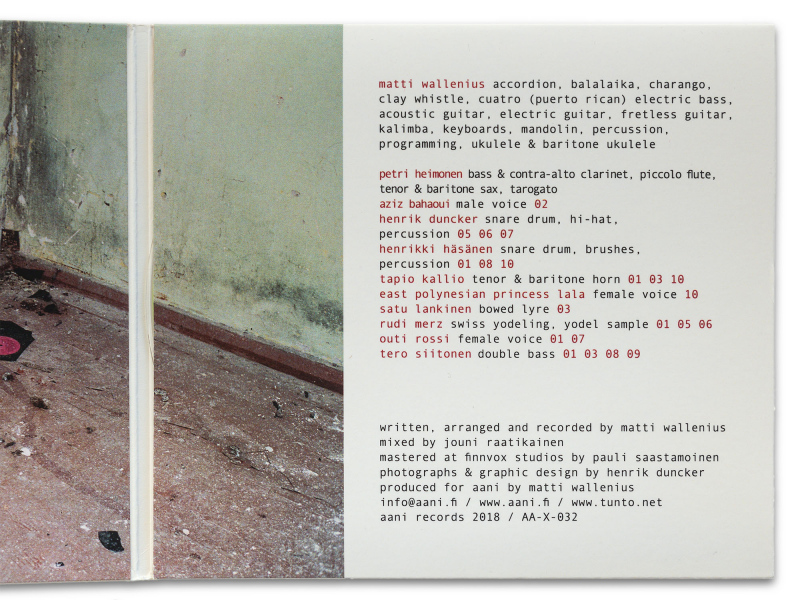 matti wallenius accordion, balalaika, charango,
clay whistle, cuatro (puerto rican) electric bass,
acoustic guitar, electric guitar, fretless guitar,
kalimba, keyboards, mandolin, percussion,
programming, ukulele & baritone ukulele
petri heimonen bass & contra-alto clarinet, piccolo flute,
tenor & baritone sax, tarogato
aziz bahaoui male voice 02
henrik duncker snare drum, hi-hat,
percussion 05 06 07
henrikki häsänen snare drum, brushes,
percussion 01 08 10
tapio kallio tenor & baritone horn 01 03 10
east polynesian princess lala female voice 10
satu lankinen bowed lyre 03
rudi merz swiss yodeling, yodel sample 01 05 06
outi rossi female voice 01 07
tero siitonen double bass 01 03 08 09
written, arranged and recorded by matti wallenius
mixed by jouni raatikainen
mastered at finnvox studios by pauli saastamoinen
photographs & graphic design by henrik duncker
produced for aani by matti wallenius
info@aani.fi / www.aani.fi / www.tunto.net
aani records 2018 / AA-X-032